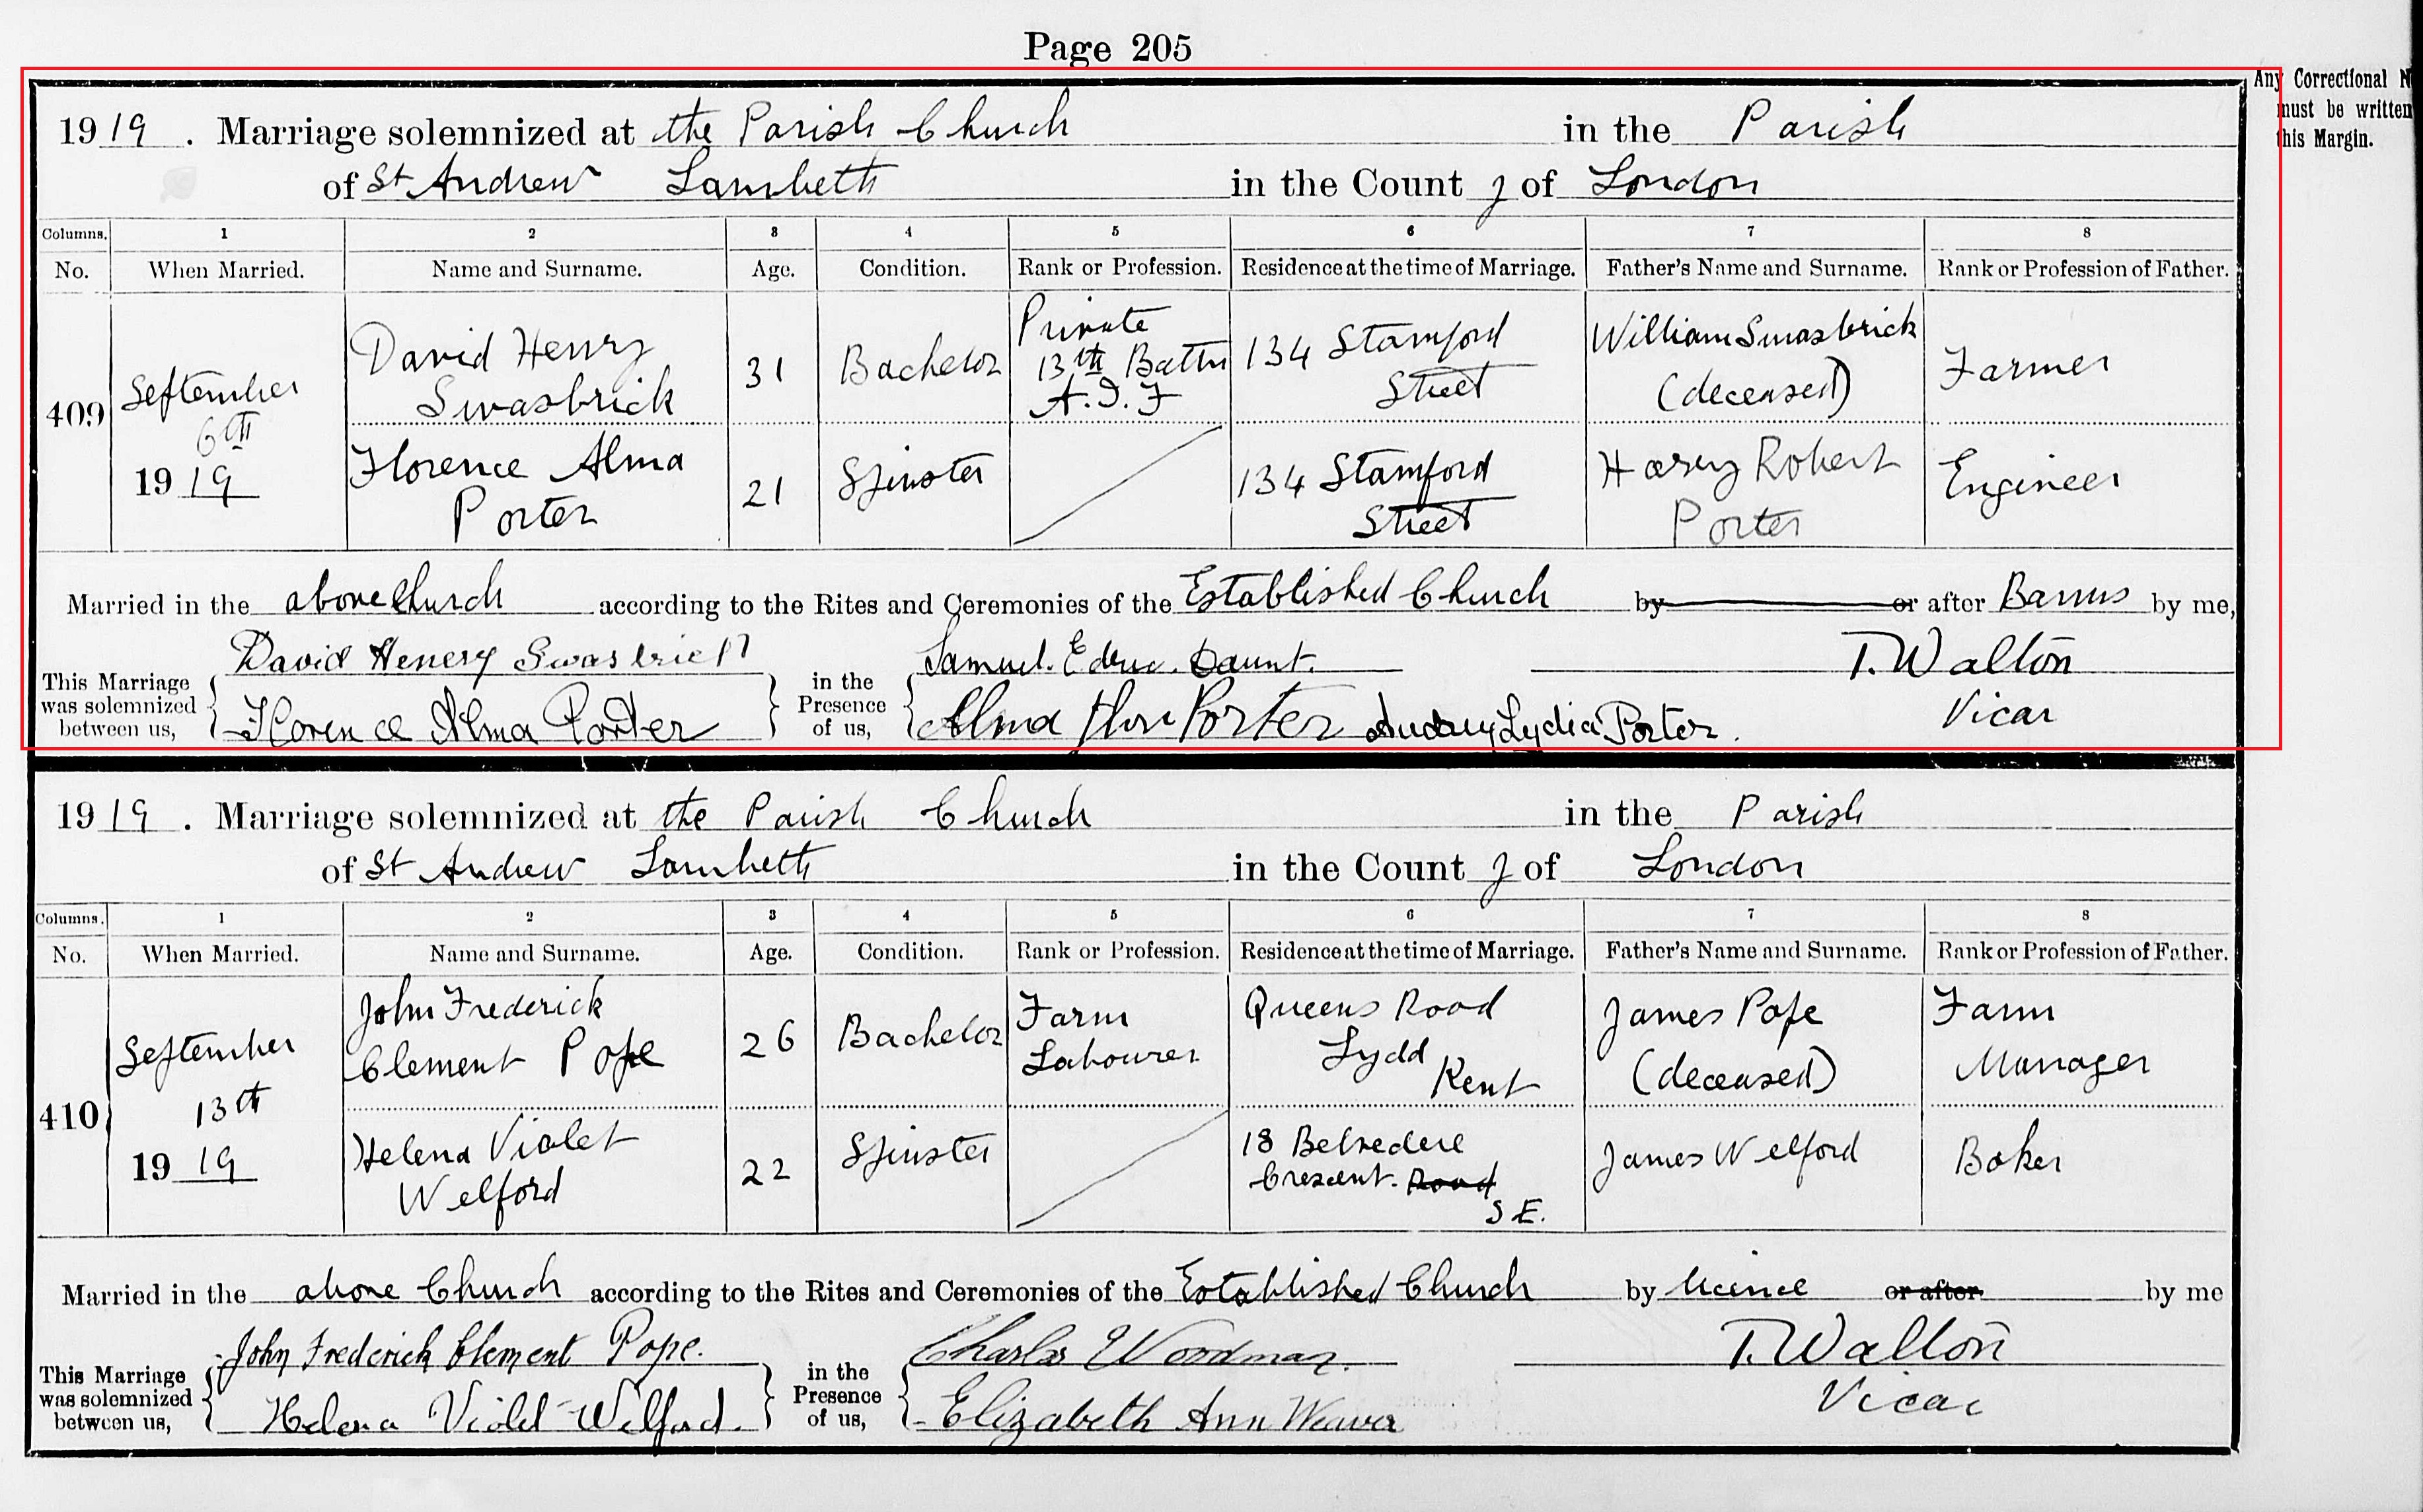 Page 205
Any Correctional N
must be written
this Margin.
1919. Marriage solemnized at the Parish Church in the Parish
of St Andrew Lambeth in the County of London
Columns. 1 2 3 4 5 6 7 8
No. When Married. Name and Surname. Age. Condition. Rank or Profession. Residence at the time of Marriage. Father's Name and Surname. Rank or Profession of Father.
409 September 6th 1919 David Henry Swasbrick 31 Bachelor Private 13th Battn A.I.F 134 Stamford Street William Swasbrick (deceased) Farmer
Florence Alma Porter 21 Spinster 134 Stamford Street Harry Robert Porter Engineer
Married in the above Church according to the Rites and Ceremonies of the Established Church by or after Banns by me,
This Marriage was solemnized between us, David Henery Swasbrick in the Presence of us, Samuel. Daunt. T. Walton
Florence Alma Porter Alma Porter Audrey Lydia Porter. Vicar
1919. Marriage solemnized at the Parish Church in the Parish
of St Andrew Lambeth in the County of London
Columns. 1 2 3 4 5 6 7 8
No. When Married. Name and Surname. Age. Condition. Rank or Profession. Residence at the time of Marriage. Father's Name and Surname. Rank or Profession of Father.
410 September 13th 1919 John Frederick Clement Pope 26 Bachelor Farm Labourer Queens Road Lydd Kent James Pope (deceased) Farm Manager
Helena Violet Welford 22 Spinster 18 Belvedere Crescent. Road S.E. James Welford Baker
Married in the above Church according to the Rites and Ceremonies of the Established Church by licence or after by me
This Marriage was solemnized between us, John Frederick Clement Pope. in the Presence of us, Charles Woodman. T. Walton
Helena Violet Welford. Elizabeth Ann Weaver Vicar